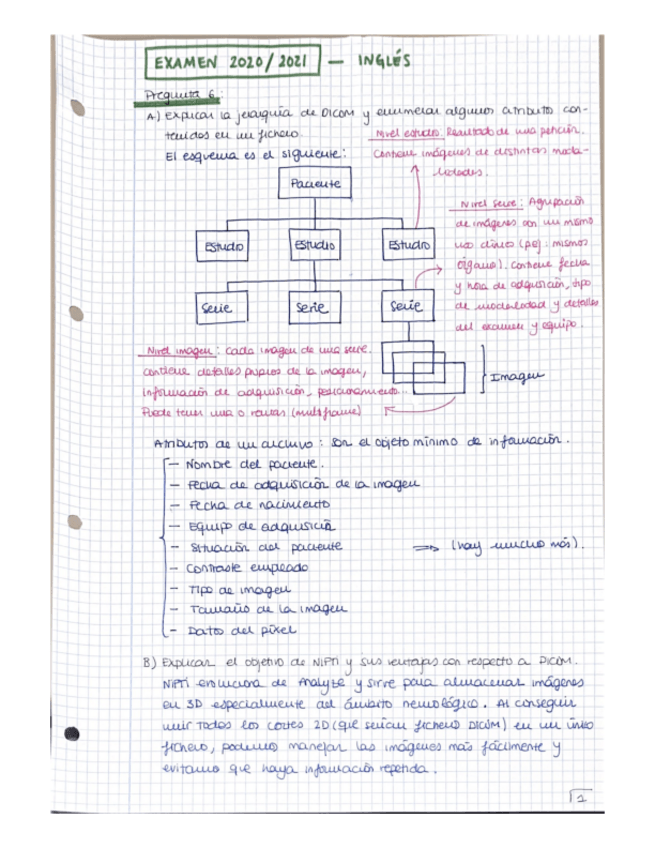 EXAMEN 2020/2021 — INGLÉS
Pregunta 6:
A) Explicar la jerarquía de DICOM y enumerar algunos atributos con-
tenidos en un fichero.
El esquema es el siguiente:
Nivel estudio: Resultado de una petición.
Contiene imágenes de distintas moda-
lidades.
Paciente
Nivel serie: Agrupación
de imágenes con un mismo
uso clínico (pej: mismos
órganos). Contiene fecha
y hora de adquisición, tipo
de modalidad y detalles
del examen y equipo.
Estudio Estudio Estudio
Serie Serie Serie
Nivel imagen: Cada imagen de una serie.
contiene detalles propios de la imagen,
información de adquisición, posicionamiento...
Puede tener una o varias (multiframe)
Imagen
Atributos de un archivo: Son el objeto mínimo de información.
— Nombre del paciente.
— Fecha de adquisición de la imagen
— Fecha de nacimiento
— Equipo de adquisición
— Situación del paciente ⇒ (hay mucho más).
— Contraste empleado
— Tipo de imagen
— Tamaño de la imagen
— Datos del píxel
B) Explicar el objetivo de NIFTI y sus ventajas con respecto a DICOM.
NIFTI evoluciona de Analyze y sirve para almacenar imágenes
en 3D especialmente del ámbito neurológico. Al conseguir
unir todos los cortes 2D (que serían fichero DICOM) en un único
fichero, podemos manejar las imágenes más fácilmente y
evitamos que haya información repetida.
1